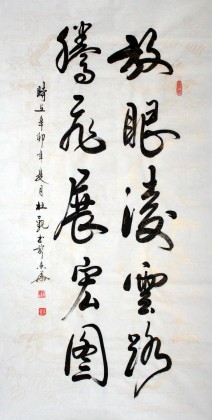 放眼凌雲路
騰飛展宏图
時在辛卯年夏月杜